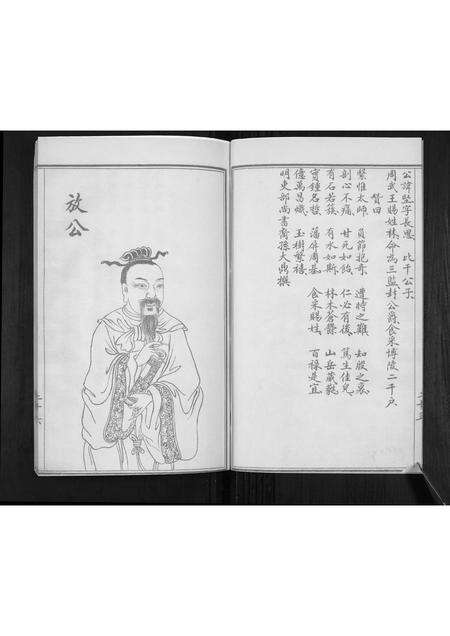 公諱堅字長恩 比干公子
周武王賜姓林命為三監封公爵食采博陵二千戶
贊曰
繄惟太師 貞節抱奇 遭時之難 知殷之衰
剖心不痛 甘死如飴 仁必有後 篤生佳兒
有石若簇 有水如斯 林木蒼鬱 山岳巖巍
寶鍾名哲 藩屏周基 食采賜姓 百祿是宜
億萬昌熾 玉樹繁禧
明吏部尚書裔孫大鼎撰
放公